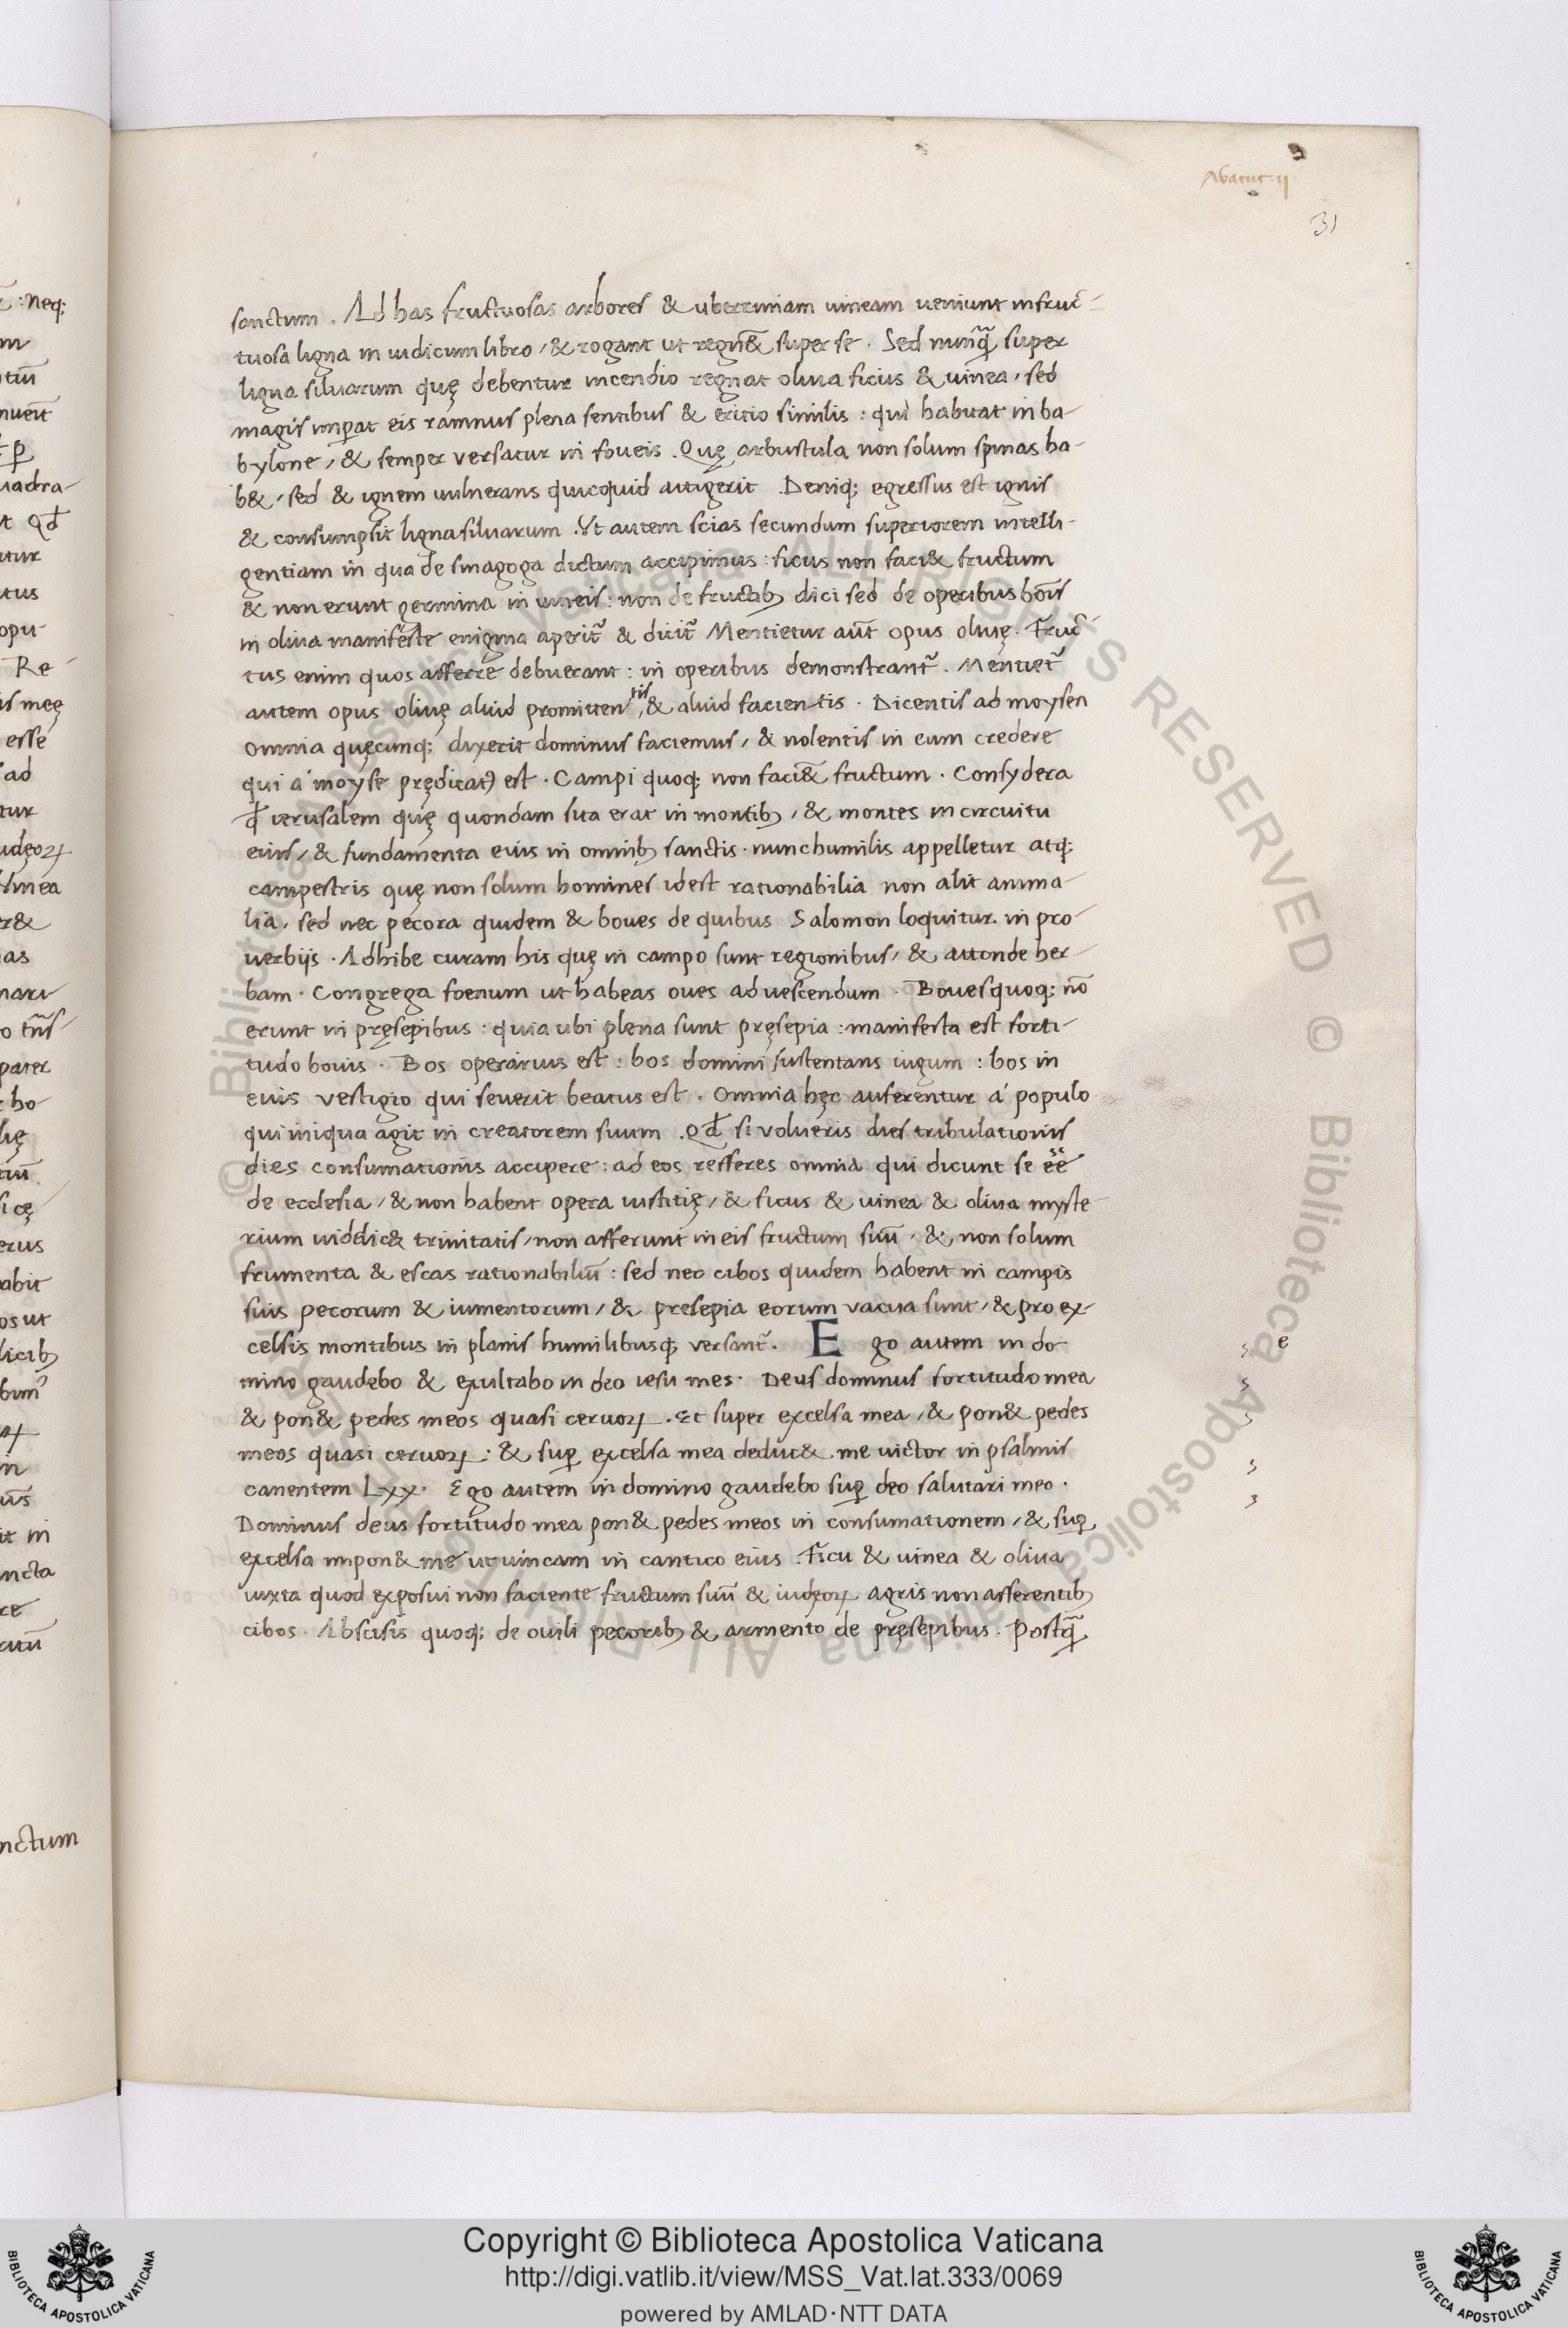 Abacuc ii
31
sanctum . Ad has fructuosas arbores & uberrimam uineam ueniunt infruc̄-
tuosa ligna in iudicum libro / & rogant ut regn& super se . Sed nunq̄ super
ligna siluarum quę debentur incendio regnat oliua ficus & uinea / sed
magis imꝑat eis ramnus plena sentibus & ericio similis : qui habitat in ba-
bylone / & semper versatur in foueis . Quę arbustula non solum spinas ha-
b& / sed & ignem uulnerans quicquid attigerit . Deniq; egressus est ignis
& consumpsit ligna siluarum . Vt autem scias secundum superiorem intelli-
gentiam in qua de sinagoga dictum accipimus : ficus non faci& fructum
& non erunt germina in uineis : non de fructibꝫ dici sed de operibus bōis
in oliua manifeste enigma aperit̄ & dicit̄ Mentietur aūt opus oliuę . Fruc̄-
tus enim quos afferre debuerant : in operibus demonstrant̄ . Mentiet̄
autem opus oliuę aliud promitten tis , & aliud facientis . Dicentis ad moysen
omnia quęcunq; dixerit dominus faciemus / & nolentis in eum credere
qui á moyse prędicatꝰ est . Campi quoq; non faci& fructum . Consydera
qđ ierusalem quę quondam sita erat in montibꝫ / & montes in circuitu
eius / & fundamenta eius in omnibꝫ sanctis . nunc humilis appelletur atq;
campestris quę non solum homines idest rationabilia non alit anima-
lia / sed nec pecora quidem & boues de quibus Salomon loquitur in pro-
uerbijs . Adhibe curam his quę in campo sunt regionibus / & attonde her-
bam . Congrega foenum ut habeas oues ad uescendum . Boues quoq; nō
erunt in pręsepibus : quia ubi plena sunt pręsepia : manifesta est forti-
tudo bouis . Bos operarius est : bos domini sustentans iugum : bos in
euis vestigio qui seuerit beatus est . Omnia hęc auferentur á populo
qui iniqua agit in creatorem suum . Qđ si volueris dies tribulationis
dies consumationis accipere : ad eos refferes omnia qui dicunt se ēē
de ecclesia / & non habent opera iustitię / & ficus & uinea & oliua myste-
rium uiddic& trinitatis / non afferunt in eis fructum suū / & non solum
frumenta & escas rationabiliū : sed nec cibos quidem habent in campis
suis pecorum & iumentorum / & presepia eorum vacua sunt / & pro ex-
celsis montibus in planis humilibusq; versant̄ . E go autem in do-
mino gaudebo & exultabo in deo iesu meo . Deus dominus fortitudo mea
& pon& pedes meos quasi ceruoꝝ . Et super excelsa mea / & pon& pedes
meos quasi ceruoꝝ : & suꝑ excelsa mea deduc& me victor in psalmis
canentem Lxx . Ego autem in domino gaudebo suꝑ deo salutari meo .
Dominus deus fortitudo mea pon& pedes meos in consumationem / & suꝑ
excelsa impon& me ut uincam in cantico eius . Ficu & uinea & oliua
iuxta quod exposui non faciente fructum suū & iudęoꝝ agris non afferentibꝫ
cibos . Abscisis quoq; de ouili pecoribꝫ & armento de pręsepibus . Postq̄
e
Copyright © Biblioteca Apostolica Vaticana
http://digi.vatlib.it/view/MSS_Vat.lat.333/0069
powered by AMLAD·NTT DATA